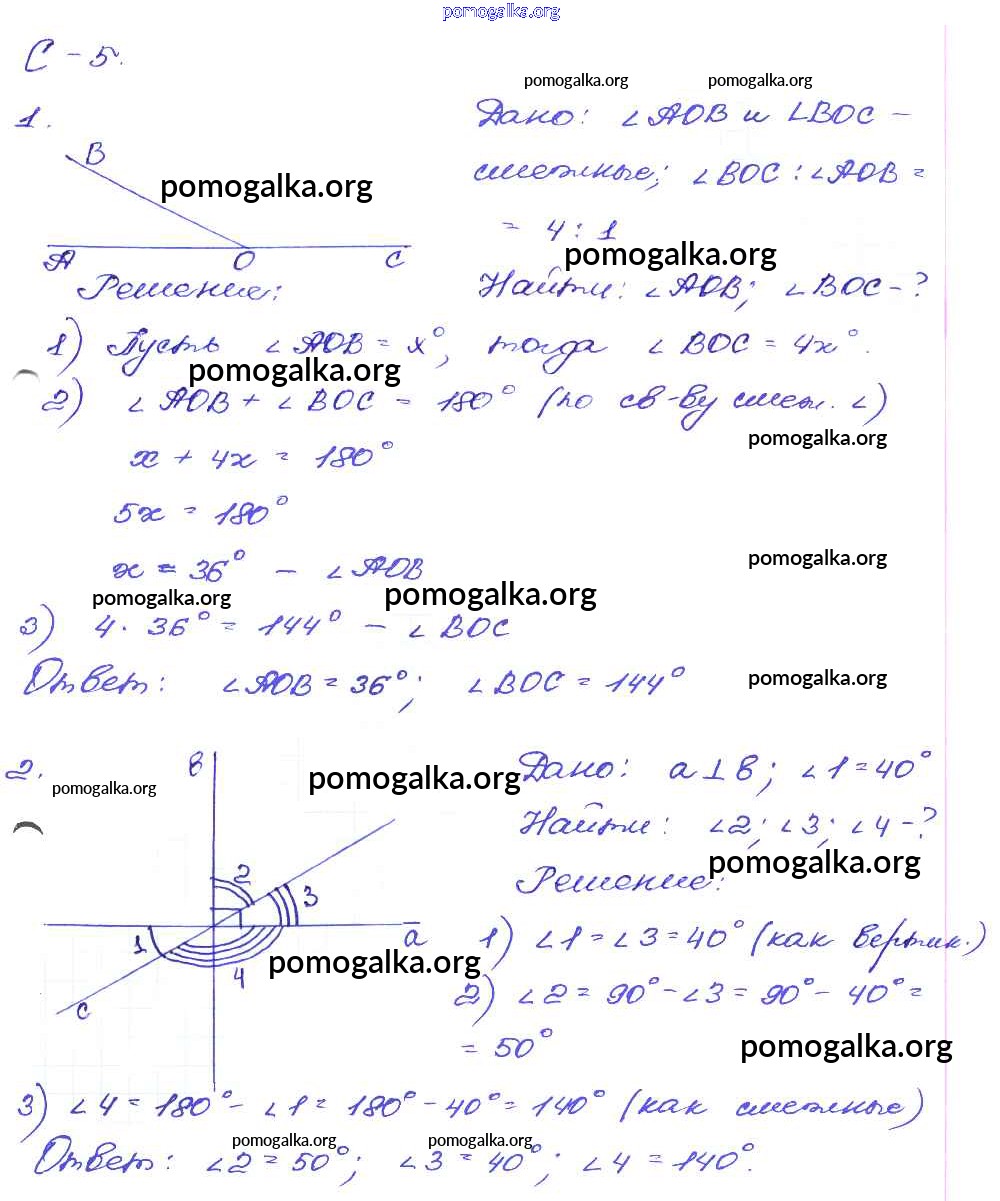 pomogalka.org
С – 5.
pomogalka.org pomogalka.org
1.
Дано: ∠AOB и ∠BOC –
B
pomogalka.org
смежные; ∠BOC : ∠AOB =
= 4 : 1
pomogalka.org
A O C
Решение:
Найти: ∠AOB; ∠BOC – ?
1) Пусть ∠AOB = x°, тогда ∠BOC = 4x°.
pomogalka.org
2) ∠AOB + ∠BOC = 180° (по св-ву смеж. ∠)
pomogalka.org
x + 4x = 180°
5x = 180°
pomogalka.org
x = 36° – ∠AOB
pomogalka.org pomogalka.org
3) 4 · 36° = 144° – ∠BOC
Ответ: ∠AOB = 36°; ∠BOC = 144°
pomogalka.org
2.
в
Дано: a ⊥ в; ∠1 = 40°
pomogalka.org pomogalka.org
Найти: ∠2; ∠3; ∠4 – ?
pomogalka.org
Решение:
2
3
1
a
4
c
1) ∠1 = ∠3 = 40° (как вертик.)
pomogalka.org
2) ∠2 = 90° – ∠3 = 90° – 40° =
= 50°
pomogalka.org
3) ∠4 = 180° – ∠1 = 180° – 40° = 140° (как смежные)
pomogalka.org pomogalka.org
Ответ: ∠2 = 50°; ∠3 = 40°; ∠4 = 140°.